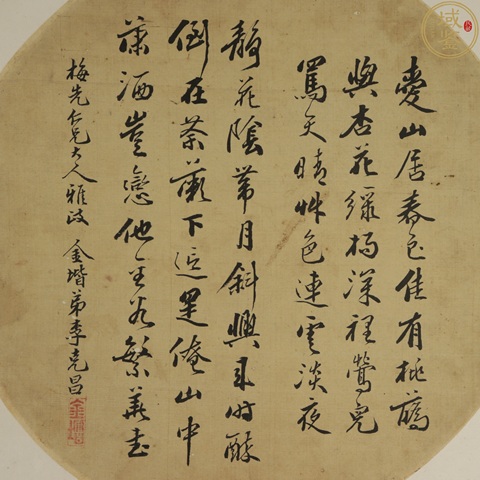 愛山居春色佳有桃
與杏花綠楊深裡鶯兒
罵天晴草色連雲淡夜
靜花陰帶月斜興來時醉
倒在荼蘼下這是俺山中
蕭洒豈戀他金谷繁華
梅先仁兄大人雅政 金堦弟李克昌